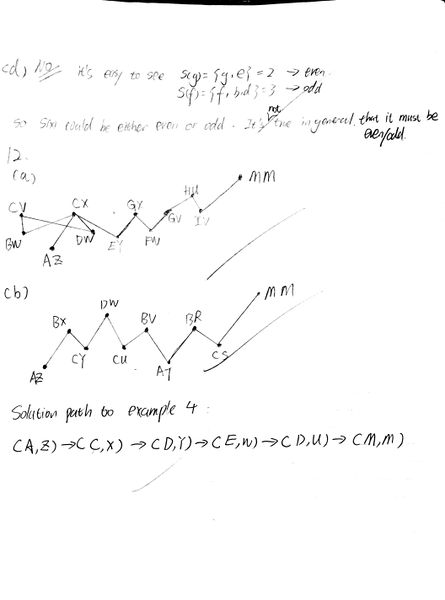 (d) No it's easy to see S(g)={g,e}=2 → even.
S(f)={f,b,d}=3 → odd
not
so S(x) could be either even or odd. It's true in general, that it must be
even/odd.
12.
(a)
MM
HU
CV CX GX
GV IV
BW DW EY FW
AZ
(b)
MM
DW
BX BV BR
CY CU CS
AZ AY
Solution path to example 4 :
(A,Z) → (C,X) → (D,Y) → (E,W) → (D,U) → (M,M)